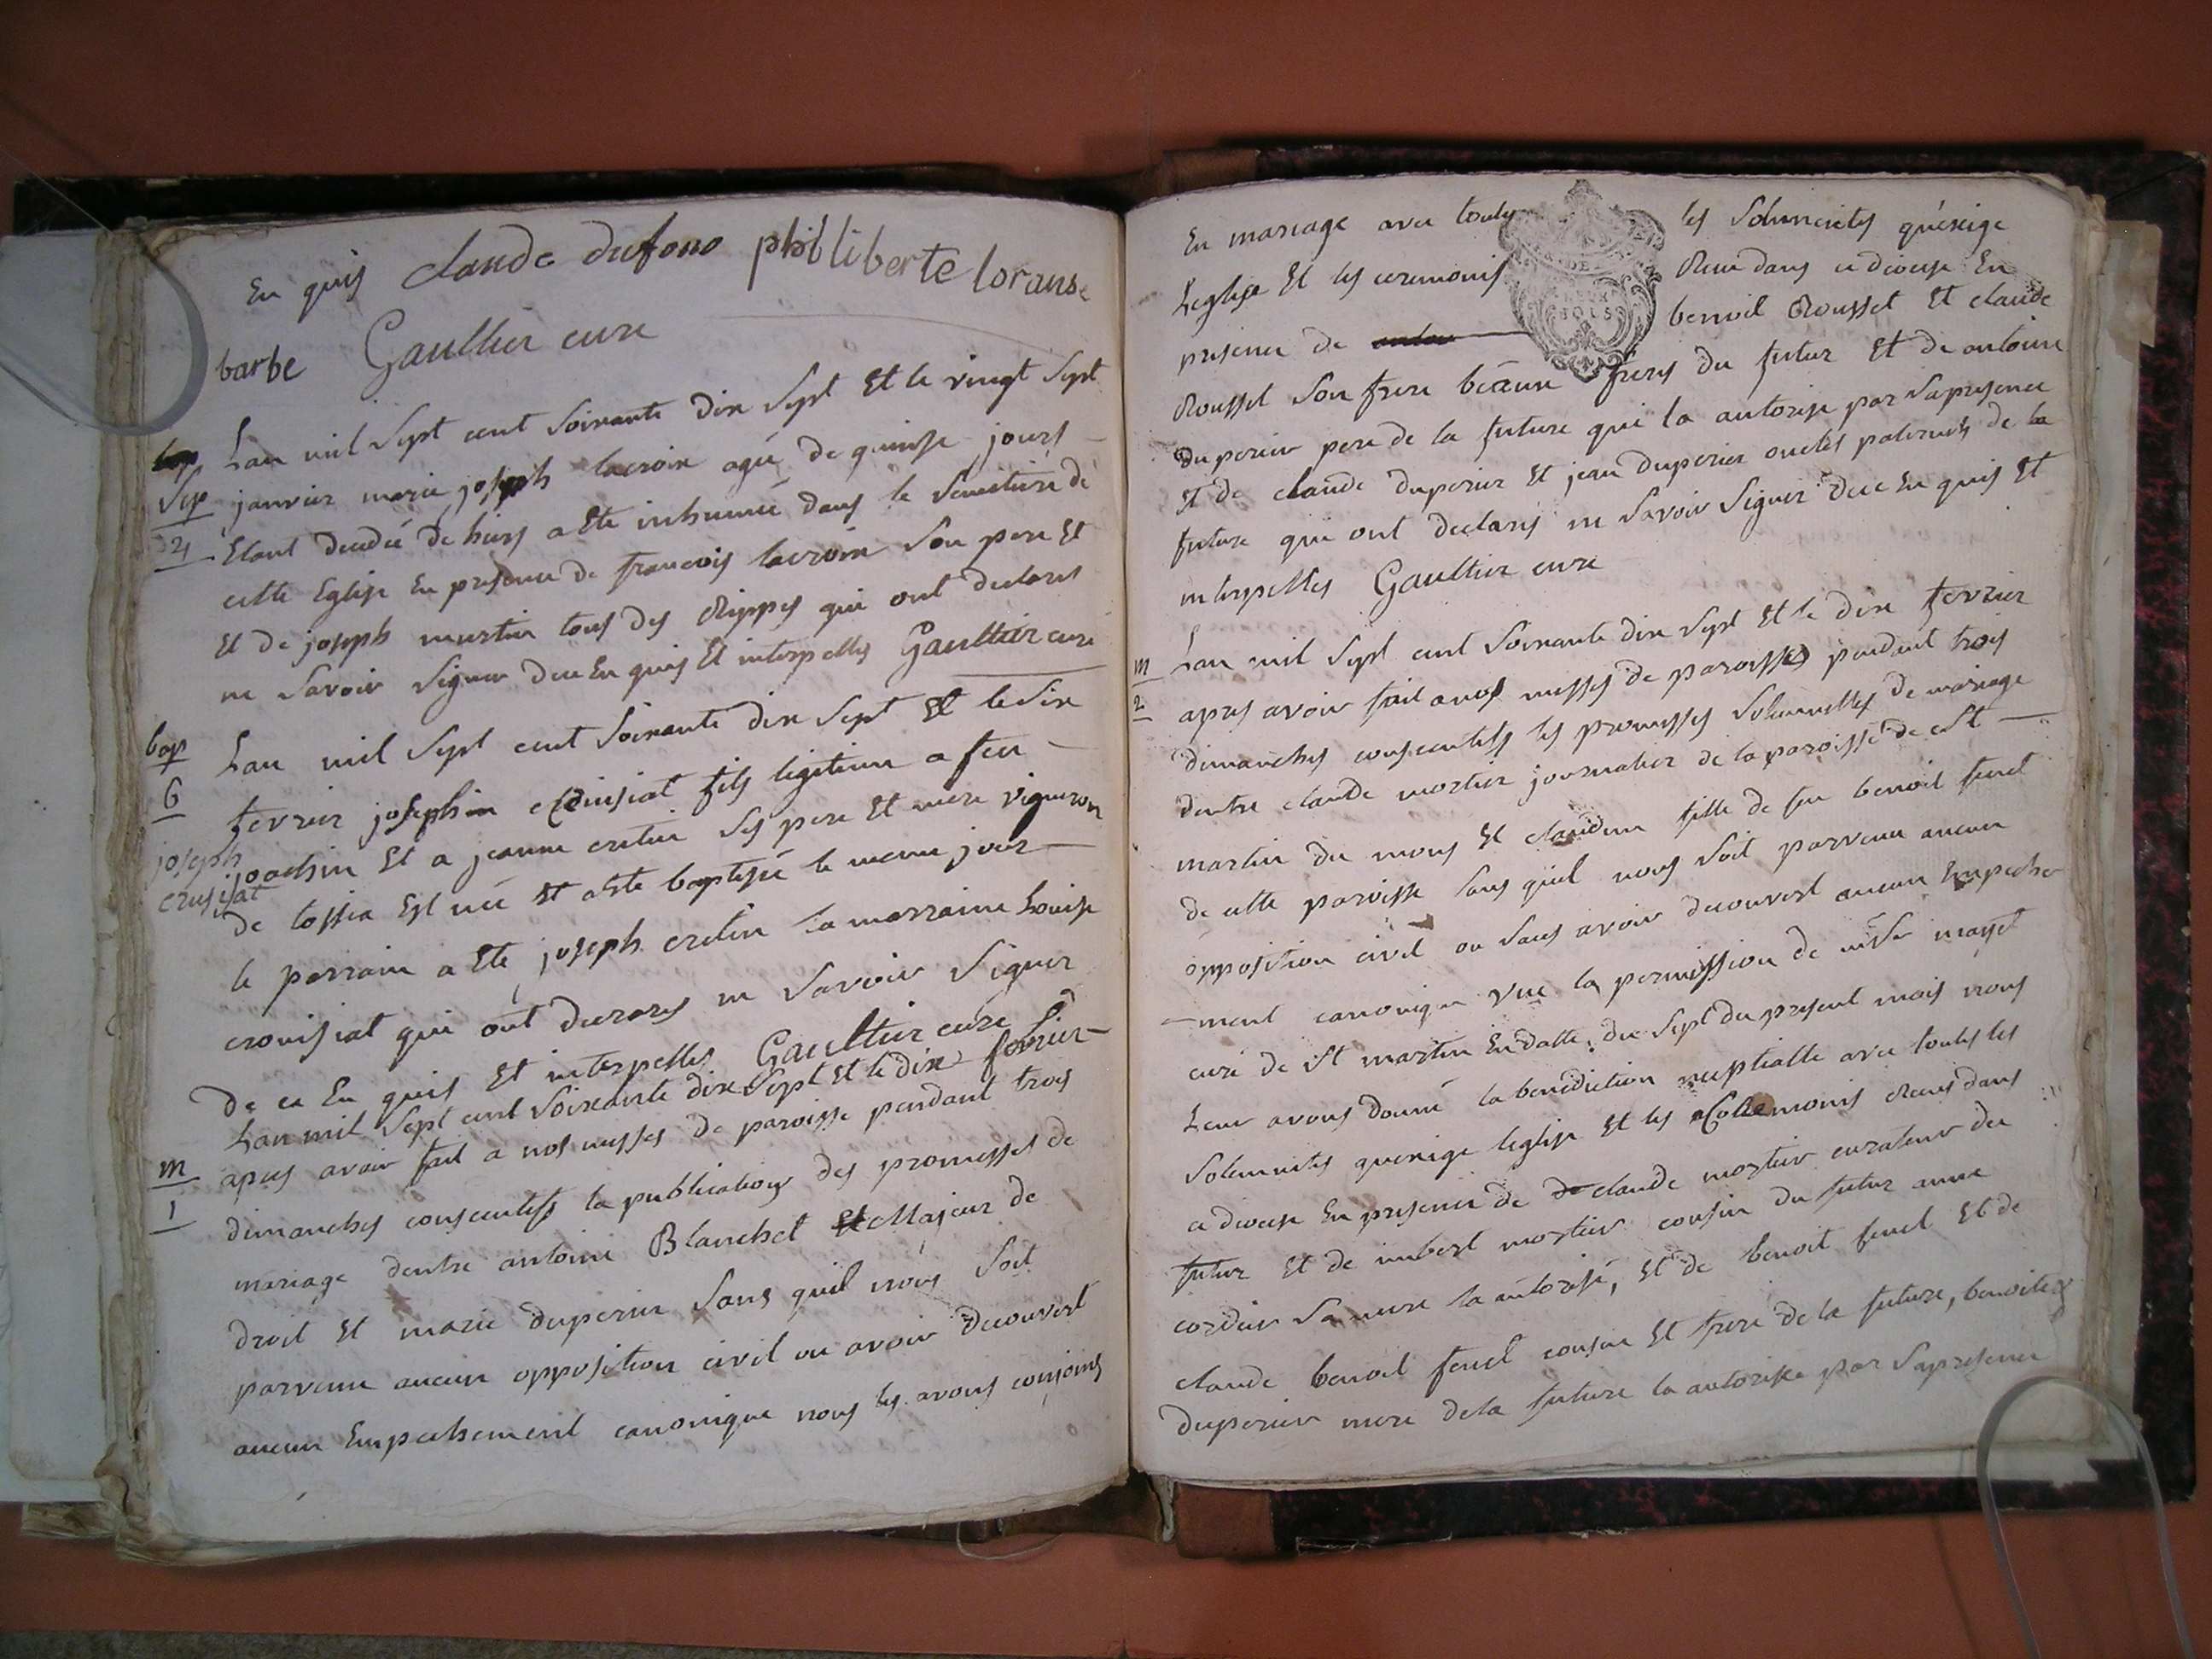 En quis claude dufour philiberte loranse
barbe Gaulthier cure
Lan mil sept cent soixante dix sept Et le vingt sept
Sep janvier marie joseph lacroix agée de quinse jours
21 Etant decedée de hiers a Ete inhumée dans le semetiere de
cette Eglise En presence de francois lacroix son pere Et
Et de joseph murtin tous des Rippes qui ont declares
ne savoir signer de ce En quis Et interpelles Gaulthier cure
bap Lan mil sept cent soixante dix sept Et le six
6 fevrier joseph crouisiat fils legitime a feu
joseph joachin Et a jeanne cretin ses pere Et mere vigneron
crusijat
de tossia Est née Et a Ete baptisée le meme jour
le parrain a Ete joseph cretin la marraine Louise
crouisiat qui ont declares ne savoir signer
de ce En quis Et interpelles Gaultier cure
Lan mil sept cent soixante dix sept Et le dix fevrier
m apres avoir fait a nos messes de paroisse pendant trois
1 dimanches consecutifs la publications des promesses de
mariage dentre antoine Blanchet Majeur de
droit Et marie duperier sans quil nous soit
parvenu aucun opposition civil ou avoir decouvert
aucun Empechement canonique nous les avons conjoins
En mariage avec toutes les solemnites qu'exige
Leglise Et les ceremonis Recu dans ce diocese En
presence de benoit Rousset Et claude
Rousset son frere freres du futur Et de antoine
duperier pere de la future qui la autorise par sa presence
Et de claude duperier Et jean duperier oncles paternels de la
future qui ont declares ne savoir signer de ce En quis Et
interpelles Gaultier cure
m Lan mil sept cent soixante dix sept Et le dix fevrier
2 apres avoir fait a nos messes de paroisses pendant trois
dimanches consecutifs les promesses solemnelles de mariage
dentre claude mortier journalier de la paroisse de St
martin du mons Et claudine fille de feu benoit feuct
de cette paroisse sans quil nous soit parvenu aucun
opposition civil ou sans avoir decouvert aucun Empeche
-ment canonique vue la permission de mesr
cure de St martin En datte du sept du present mois nous
Leur avons donné la benediction nuptialle avec toutes les
solemnites quexige leglise Et les ceremonis Recus dans
ce diocese En presence de claude mortier curateur du
futur Et de imbert mortier cousin du futur anne
cordier sa mere la autorisé, Et de benoit feuct Et de
claude benoit feuct cousin Et frere de la future, benoite
duperier mere de la future la autorise par sa presence